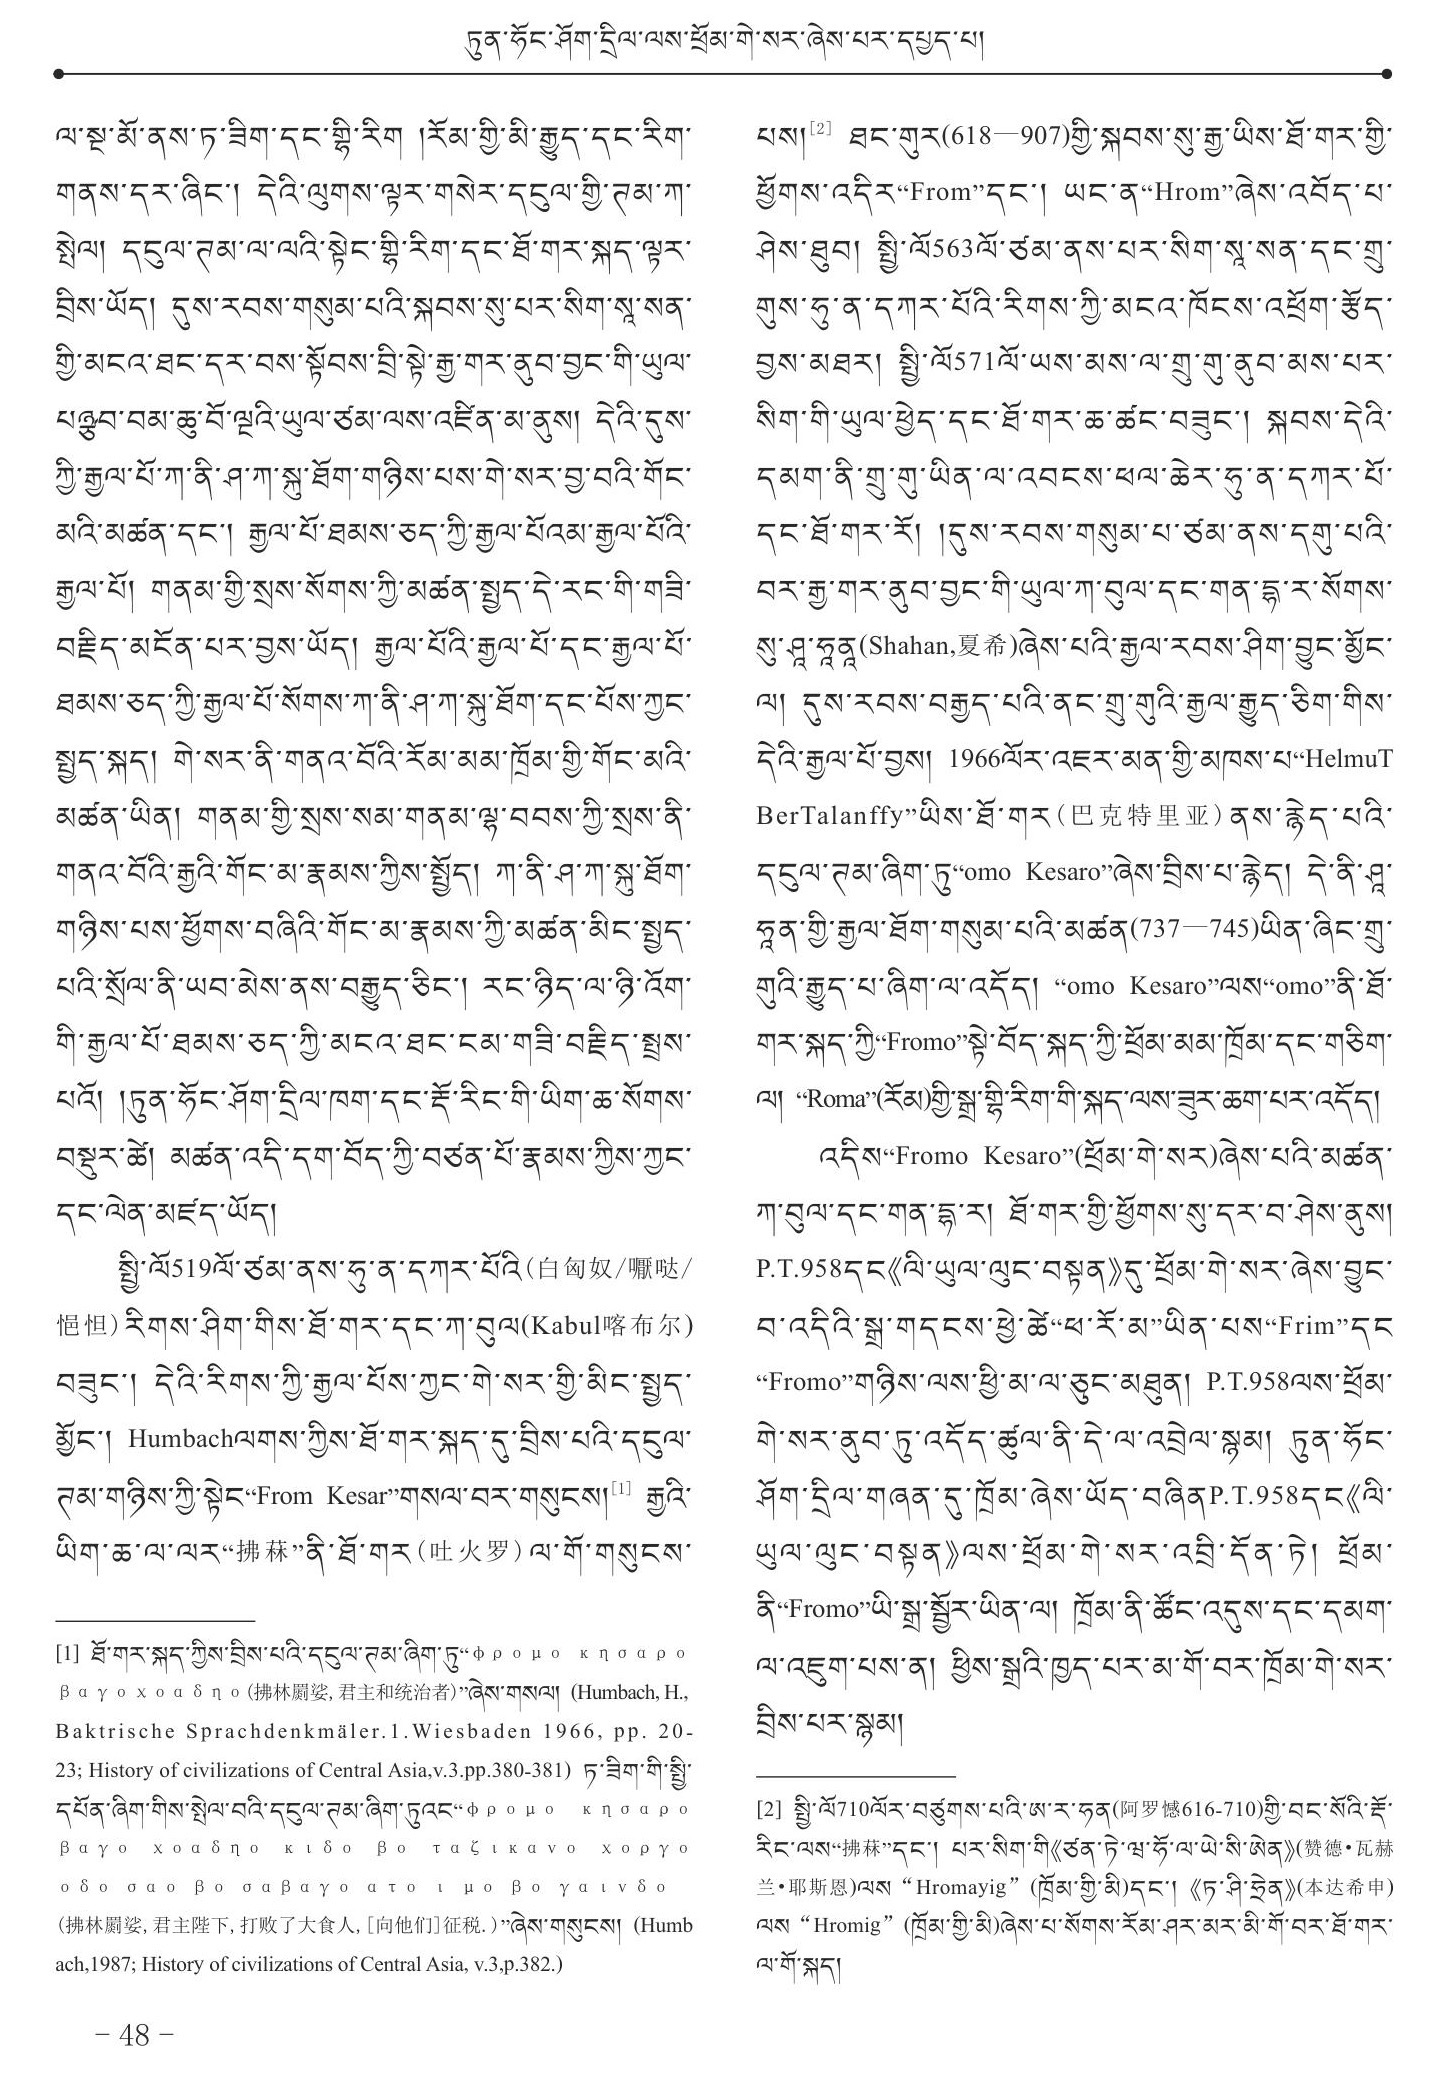 ཏུན་ཧོང་ཤོག་དྲིལ་ལས་ཕྲོམ་གེ་སར་ཞེས་པར་དཔྱད་པ།
ལ་སྔ་མོ་ནས་ཏ་ཟིག་དང་གྷི་རིག །རོམ་གྱི་མི་རྒྱུད་དང་རིག་
གནས་དར་ཞིང་། དེའི་ལུགས་ལྟར་གསེར་དངུལ་གྱི་ཊམ་ཀ་
སྤེལ། དངུལ་ཊམ་ལ་ལའི་སྟེང་གྷི་རིག་དང་ཐོ་གར་སྐད་ལྟར་
བྲིས་ཡོད། དུས་རབས་གསུམ་པའི་སྐབས་སུ་པར་སིག་སཱ་སན་
གྱི་མངའ་ཐང་དར་བས་སྟོབས་བྲི་སྟེ་རྒྱ་གར་ནུབ་བྱང་གི་ཡུལ་
པཉྫབ་བམ་ཆུ་བོ་ལྔའི་ཡུལ་ཙམ་ལས་འཛིན་མ་ནུས། དེའི་དུས་
ཀྱི་རྒྱལ་པོ་ཀ་ནི་ཤ་ཀ་སྐུ་ཐོག་གཉིས་པས་གེ་སར་བྱ་བའི་གོང་
མའི་མཚན་དང་། རྒྱལ་པོ་ཐམས་ཅད་ཀྱི་རྒྱལ་པོའམ་རྒྱལ་པོའི་
རྒྱལ་པོ། གནམ་གྱི་སྲས་སོགས་ཀྱི་མཚན་སྤྱད་དེ་རང་གི་གཟི་
བརྗིད་མངོན་པར་བྱས་ཡོད། རྒྱལ་པོའི་རྒྱལ་པོ་དང་རྒྱལ་པོ་
ཐམས་ཅད་ཀྱི་རྒྱལ་པོ་སོགས་ཀ་ནི་ཤ་ཀ་སྐུ་ཐོག་དང་པོས་ཀྱང་
སྤྱད་སྐད། གེ་སར་ནི་གནའ་བོའི་རོམ་མམ་ཁྲོམ་གྱི་གོང་མའི་
མཚན་ཡིན། གནམ་གྱི་སྲས་སམ་གནམ་ལྷ་བབས་ཀྱི་སྲས་ནི་
གནའ་བོའི་རྒྱའི་གོང་མ་རྣམས་ཀྱིས་སྤྱོད། ཀ་ནི་ཤ་ཀ་སྐུ་ཐོག་
གཉིས་པས་ཕྱོགས་བཞིའི་གོང་མ་རྣམས་ཀྱི་མཚན་མིང་སྤྱད་
པའི་སྲོལ་ནི་ཡབ་མེས་ནས་བརྒྱུད་ཅིང་། རང་ཉིད་ལ་ཉི་འོག་
གི་རྒྱལ་པོ་ཐམས་ཅད་ཀྱི་མངའ་ཐང་ངམ་གཟི་བརྗིད་སྤྲས་
པའོ། །ཏུན་ཧོང་ཤོག་དྲིལ་ཁག་དང་རྡོ་རིང་གི་ཡིག་ཆ་སོགས་
བསྡུར་ཚེ། མཚན་འདི་དག་བོད་ཀྱི་བཙན་པོ་རྣམས་ཀྱིས་ཀྱང་
དང་ལེན་མཛད་ཡོད།
སྤྱི་ལོ519ལོ་ཙམ་ནས་ཧུ་ན་དཀར་པོའི(白匈奴/嚈哒/
悒怛)རིགས་ཤིག་གིས་ཐོ་གར་དང་ཀ་བུལ(Kabul喀布尔)
བཟུང་། དེའི་རིགས་ཀྱི་རྒྱལ་པོས་ཀྱང་གེ་སར་གྱི་མིང་སྤྱད་
མྱོང་། Humbachལགས་ཀྱིས་ཐོ་གར་སྐད་དུ་བྲིས་པའི་དངུལ་
ཊམ་གཉིས་ཀྱི་སྟེང“From Kesar”གསལ་བར་གསུངས།[1] རྒྱའི་
ཡིག་ཆ་ལ་ལར“拂菻”ནི་ཐོ་གར(吐火罗)ལ་གོ་གསུངས་
[1] ཐོ་གར་སྐད་ཀྱིས་བྲིས་པའི་དངུལ་ཊམ་ཞིག་ཏུ“φρομο κησαρο
βαγοχοαδηο(拂林罽娑,君主和统治者)”ཞེས་གསལ། (Humbach, H.,
Baktrische Sprachdenkmäler.1.Wiesbaden 1966, pp. 20-
23; History of civilizations of Central Asia,v.3.pp.380-381) ཏ་ཟིག་གི་སྤྱི་
དཔོན་ཞིག་གིས་སྤེལ་བའི་དངུལ་ཊམ་ཞིག་ཏུའང“φρομο κησαρο
βαγο χοαδηο κιδο βο ταζικανο χοργο
οδο σαο βο σαβαγο ατο ι μο βο γαινδο
(拂林罽娑,君主陛下,打败了大食人,[向他们]征税.)”ཞེས་གསུངས། (Humb
ach,1987; History of civilizations of Central Asia, v.3,p.382.)
པས།[2] ཐང་གུར(618—907)གྱི་སྐབས་སུ་རྒྱ་ཡིས་ཐོ་གར་གྱི་
ཕྱོགས་འདིར“From”དང་། ཡང་ན“Hrom”ཞེས་འབོད་པ་
ཤེས་ཐུབ། སྤྱི་ལོ563ལོ་ཙམ་ནས་པར་སིག་སཱ་སན་དང་གྲུ་
གུས་ཧུ་ན་དཀར་པོའི་རིགས་ཀྱི་མངའ་ཁོངས་འཕྲོག་རྩོད་
བྱས་མཐར། སྤྱི་ལོ571ལོ་ཡས་མས་ལ་གྲུ་གུ་ནུབ་མས་པར་
སིག་གི་ཡུལ་ཕྱེད་དང་ཐོ་གར་ཆ་ཚང་བཟུང་། སྐབས་དེའི་
དམག་ནི་གྲུ་གུ་ཡིན་ལ་འབངས་ཕལ་ཆེར་ཧུ་ན་དཀར་པོ་
དང་ཐོ་གར་རོ། །དུས་རབས་གསུམ་པ་ཙམ་ནས་དགུ་པའི་
བར་རྒྱ་གར་ནུབ་བྱང་གི་ཡུལ་ཀ་བུལ་དང་གན་དྷ་ར་སོགས་
སུ་ཤཱ་ཧཱནཱ(Shahan,夏希)ཞེས་པའི་རྒྱལ་རབས་ཤིག་བྱུང་མྱོང་
ལ། དུས་རབས་བརྒྱད་པའི་ནང་གྲུ་གུའི་རྒྱལ་རྒྱུད་ཅིག་གིས་
དེའི་རྒྱལ་པོ་བྱས། 1966ལོར་འཇར་མན་གྱི་མཁས་པ“HelmuT
BerTalanffy”ཡིས་ཐོ་གར(巴克特里亚)ནས་རྙེད་པའི་
དངུལ་ཊམ་ཞིག་ཏུ“omo Kesaro”ཞེས་བྲིས་པ་རྙེད། དེ་ནི་ཤཱ་
ཧཱན་གྱི་རྒྱལ་ཐོག་གསུམ་པའི་མཚན(737—745)ཡིན་ཞིང་གྲུ་
གུའི་རྒྱུད་པ་ཞིག་ལ་འདོད། “omo Kesaro”ལས“omo”ནི་ཐོ་
གར་སྐད་ཀྱི“Fromo”སྟེ་བོད་སྐད་ཀྱི་ཕྲོམ་མམ་ཁྲོམ་དང་གཅིག་
ལ། “Roma”(རོམ)གྱི་སྒྲ་གྷི་རིག་གི་སྐད་ལས་ཟུར་ཆག་པར་འདོད།
འདིས“Fromo Kesaro”(ཕྲོམ་གེ་སར)ཞེས་པའི་མཚན་
ཀ་བུལ་དང་གན་དྷ་ར། ཐོ་གར་གྱི་ཕྱོགས་སུ་དར་བ་ཤེས་ནུས།
P.T.958དང《ལི་ཡུལ་ལུང་བསྟན》དུ་ཕྲོམ་གེ་སར་ཞེས་བྱུང་
བ་འདིའི་སྒྲ་གདངས་ཕྱེ་ཚེ“ཕ་རོ་མ”ཡིན་པས“Frim”དང
“Fromo”གཉིས་ལས་ཕྱི་མ་ལ་ཅུང་མཐུན། P.T.958ལས་ཕྲོམ་
གེ་སར་ནུབ་ཏུ་འདོད་ཚུལ་ནི་དེ་ལ་འབྲེལ་སྙམ། ཏུན་ཧོང་
ཤོག་དྲིལ་གཞན་དུ་ཁྲོམ་ཞེས་ཡོད་བཞིནP.T.958དང《ལི་
ཡུལ་ལུང་བསྟན》ལས་ཕྲོམ་གེ་སར་འབྲི་དོན་ཏེ། ཕྲོམ་
ནི“Fromo”ཡི་སྒྲ་སྦྱོར་ཡིན་ལ། ཁྲོམ་ནི་ཚོང་འདུས་དང་དམག་
ལ་འཇུག་པས་ན། ཕྱིས་སྒྲའི་ཁྱད་པར་མ་གོ་བར་ཁྲོམ་གེ་སར་
བྲིས་པར་སྙམ།
[2] སྤྱི་ལོ710ལོར་བཙུགས་པའི་ཨ་ར་ཧན(阿罗憾616-710)གྱི་བང་སོའི་རྡོ་
རིང་ལས“拂菻”དང་། པར་སིག་གི《ཙན་ཏེ་ཝ་ཧོ་ལ་ཡེ་སི་ཨེན》(赞德•瓦赫
兰•耶斯恩)ལས “Hromayig” (ཁྲོམ་གྱི་མི)དང་། 《ཏ་ཤི་ཧྲེན》(本达希申)
ལས “Hromig” (ཁྲོམ་གྱི་མི)ཞེས་པ་སོགས་རོམ་ཤར་མར་མི་གོ་བར་ཐོ་གར་
ལ་གོ་སྐད།
– 48 –